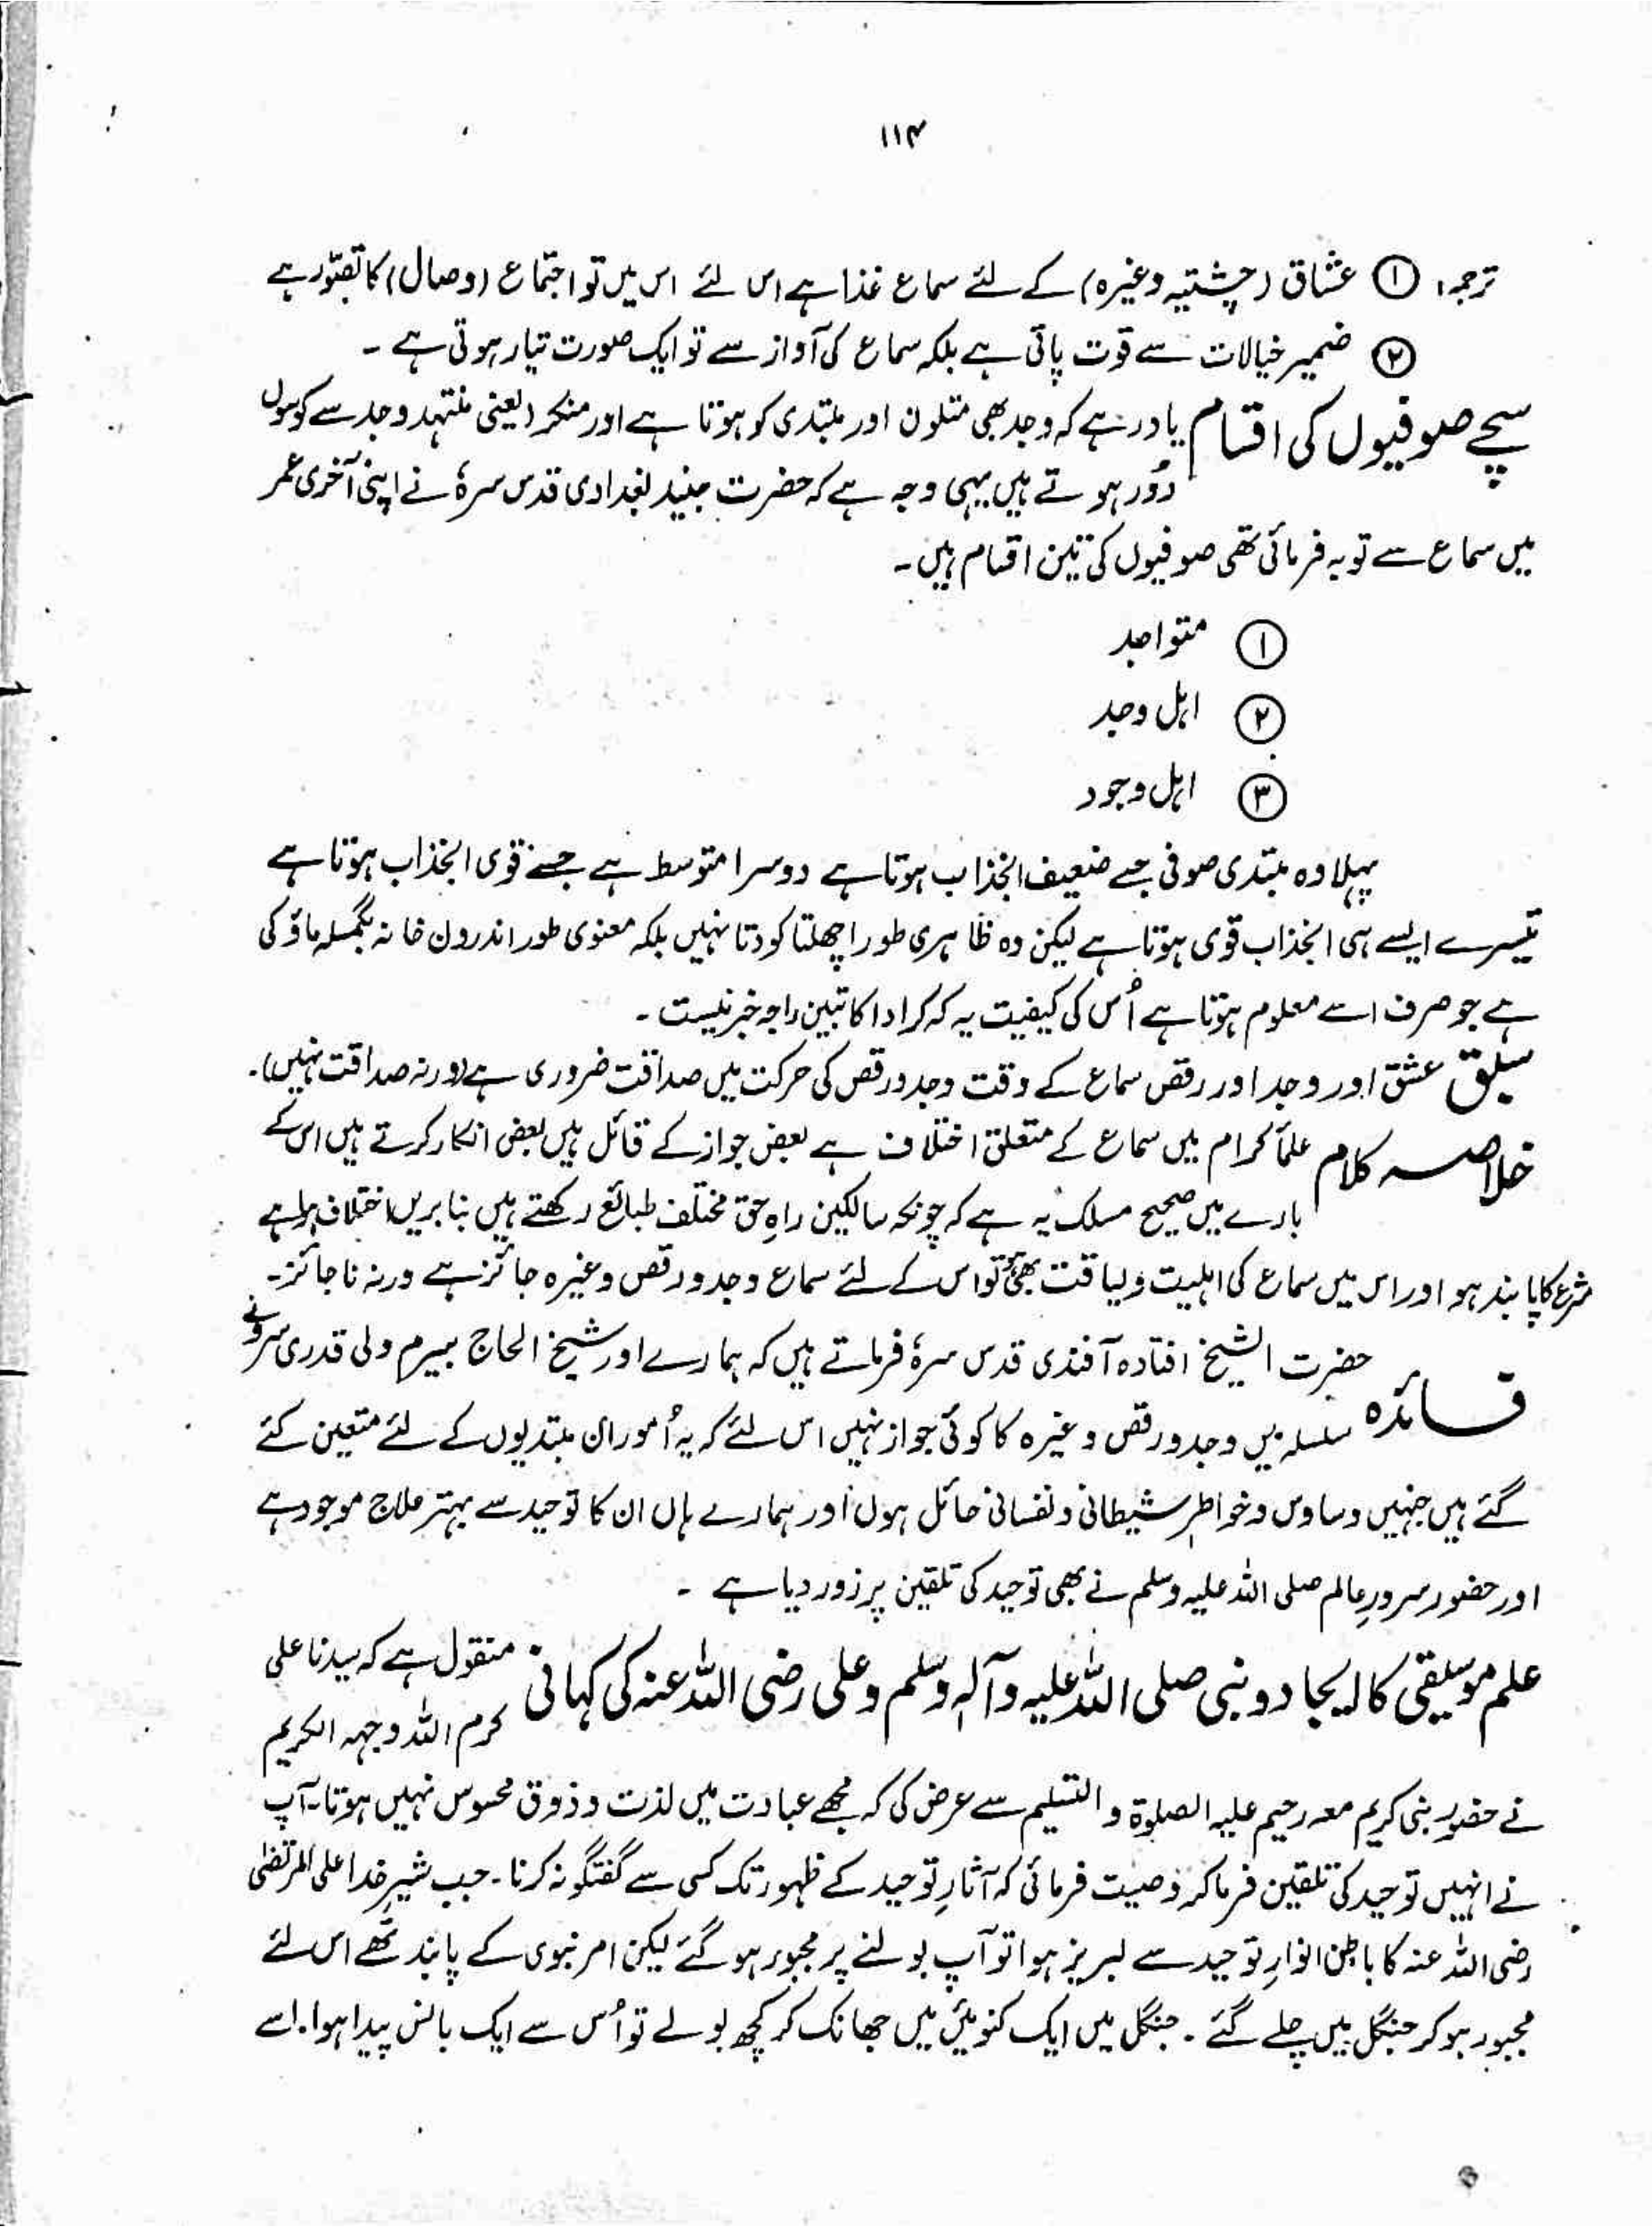 ۱۱۴
ترجمہ: ① عشاق (چشتیہ وغیرہ) کے لئے سماع غذا ہے اس لئے اس میں تو اجتماع (وصال) کا تصوّر ہے
② ضمیر خیالات سے قوت پاتی ہے بلکہ سماع کی آواز سے تو ایک صورت تیار ہوتی ہے ۔
سچے صوفیوں کی اقسام یاد رہے کہ وجد بھی متلون اور مبتدی کو ہوتا ہے اور منکر (یعنی منتہی وجد سے کوسوں
دُور ہوتے ہیں یہی وجہ ہے کہ حضرت جنید بغدادی قدس سرہٗ نے اپنی آخری عمر
میں سماع سے توبہ فرمائی تھی صوفیوں کی تین اقسام ہیں۔
① متواجد
② اہل وجد
③ اہل وجود
پہلا وہ مبتدی صوفی جسے ضعیف انجذاب ہوتا ہے دوسرا متوسط ہے جسے قوی انجذاب ہوتا ہے
تیسرے ایسے ہی انجذاب قوی ہوتا ہے لیکن وہ ظاہری طور اچھلتا کودتا نہیں بلکہ معنوی طور اندرون خانہ
ہے جو صرف اسے معلوم ہوتا ہے اُس کی کیفیت یہ کہ کراماً کاتبین را ہم خبر نیست ۔
سبق عشق اور وجد اور رقص سماع کے وقت وجد ورقص کی حرکت میں صداقت ضروری ہے (ورنہ صداقت نہیں)۔
خلاصہ کلام علماَ کرام میں سماع کے متعلق اختلاف ہے بعض جواز کے قائل ہیں بعض انکار کرتے ہیں اس کے
بارے میں صحیح مسلک یہ ہے کہ چونکہ سالکین راہِ حق مختلف طبائع رکھتے ہیں بنا بریں اختلاف ہوا ہے
شرع کا پابند ہو اور اس میں سماع کی اہلیت و لیاقت بھی تو اس کے لئے سماع وجد ورقص وغیرہ جائز ہے ورنہ ناجائز۔
فائدہ حضرت الشیخ افتادہ آفندی قدس سرہٗ فرماتے ہیں کہ ہمارے اور شیخ الحاج بیرم ولی قدری سرہٗ نے
سلسلہ میں وجد ورقص وغیرہ کا کوئی جواز نہیں اس لئے کہ یہ اُمور ان مبتدیوں کے لئے متعین کئے
گئے ہیں جنہیں وساوس وخواطرِ شیطانی ونفسانی حائل ہوں اور ہمارے ہاں ان کا توحید سے بہتر علاج موجود ہے
اور حضور سرورِ عالم صلی اللہ علیہ وسلم نے بھی توحید کی تلقین پر زور دیا ہے ۔
علم موسیقی کا ایجاد ونبی صلی اللہ علیہ وآلہٖ وسلم وعلی رضی اللہ عنہ کی کہانی منقول ہے کہ سیدنا علی
کرم اللہ وجہہ الکریم
نے حضور نبی کریم رحیم علیہ الصلوٰۃ والتسلیم سے عرض کی کہ مجھے عبادت میں لذت وذوق محسوس نہیں ہوتا۔ آپ
نے انہیں توحید کی تلقین فرما کر وصیت فرمائی کہ آثارِ توحید کے ظہور تک کسی سے گفتگو نہ کرنا۔ جب شیرِ خدا علی المرتضیٰ
رضی اللہ عنہ کا باطن انوارِ توحید سے لبریز ہوا تو آپ بولنے پر مجبور ہو گئے لیکن امر نبوی کے پابند تھے اس لئے
مجبور ہو کر جنگل میں چلے گئے ۔ جنگل میں ایک کنویئں میں جھانک کر کچھ بولے تو اُس سے ایک بانس پیدا ہوا۔ اسے